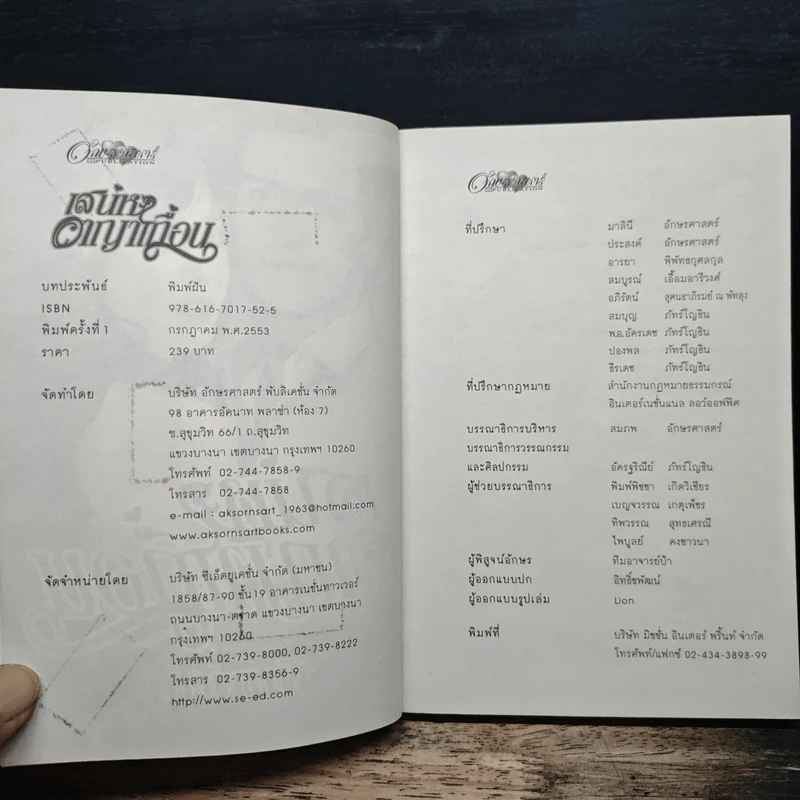 อักษรศาสตร์
PUBLICATION
เสน่หาญาเถื่อน
บทประพันธ์ พิมพ์ฝัน
ISBN 978-616-7017-52-5
พิมพ์ครั้งที่ 1 กรกฎาคม พ.ศ.2553
ราคา 239 บาท
จัดทำโดย บริษัท อักษรศาสตร์ พับลิเคชั่น จำกัด
98 อาคารอัคนาท พลาซ่า (ห้อง 7)
ซ.สุขุมวิท 66/1 ถ.สุขุมวิท
แขวงบางนา เขตบางนา กรุงเทพฯ 10260
โทรศัพท์ 02-744-7858-9
โทรสาร 02-744-7858
e-mail : aksornsart_1963@hotmail.com
www.aksornsartbooks.com
จัดจำหน่ายโดย บริษัท ซีเอ็ดยูเคชั่น จำกัด (มหาชน)
1858/87-90 ชั้น 19 อาคารเนชั่นทาวเวอร์
ถนนบางนา-ตราด แขวงบางนา เขตบางนา
กรุงเทพฯ 10260
โทรศัพท์ 02-739-8000, 02-739-8222
โทรสาร 02-739-8356-9
http://www.se-ed.com
อักษรศาสตร์
PUBLICATION
ที่ปรึกษา มาลินี อักษรศาสตร์
ประสงค์ อักษรศาสตร์
อารยา พิพัทธกุศลกุล
สมบูรณ์ เอื้อมอารีวงศ์
อภิรัตน์ สุคนธาภิรมย์ ณ พัทลุง
สมบุญ ภัทร์โญธิน
พ.อ.อัครเดช ภัทร์โญธิน
ปองพล ภัทร์โญธิน
ธีรเดช ภัทร์โญธิน
ที่ปรึกษากฎหมาย สำนักงานกฎหมายธรรมกรณ์
อินเตอร์เนชั่นแนล ลอว์ออฟฟิศ
บรรณาธิการบริหาร สมภพ อักษรศาสตร์
บรรณาธิการวรรณกรรม
และศิลปกรรม อัครฐริณีย์ ภัทร์โญธิน
ผู้ช่วยบรรณาธิการ พิมพ์พิชชา เกิดวิเชียร
เบญจวรรณ เกตุเพ็ชร
ทิพวรรณ สุทธเศรณี
ไพบูลย์ คงชาวนา
ผู้พิสูจน์อักษร ทีมอาจารย์ป้า
ผู้ออกแบบปก อิทธิ์ชพัฒน์
ผู้ออกแบบรูปเล่ม Lion
พิมพ์ที่ บริษัท มิชชั่น อินเตอร์ พริ้นท์ จำกัด
โทรศัพท์/แฟกซ์ 02-434-3898-99